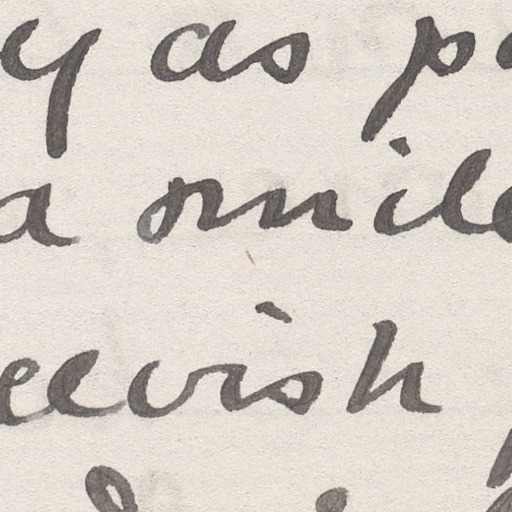 y as p
a smile
eevish